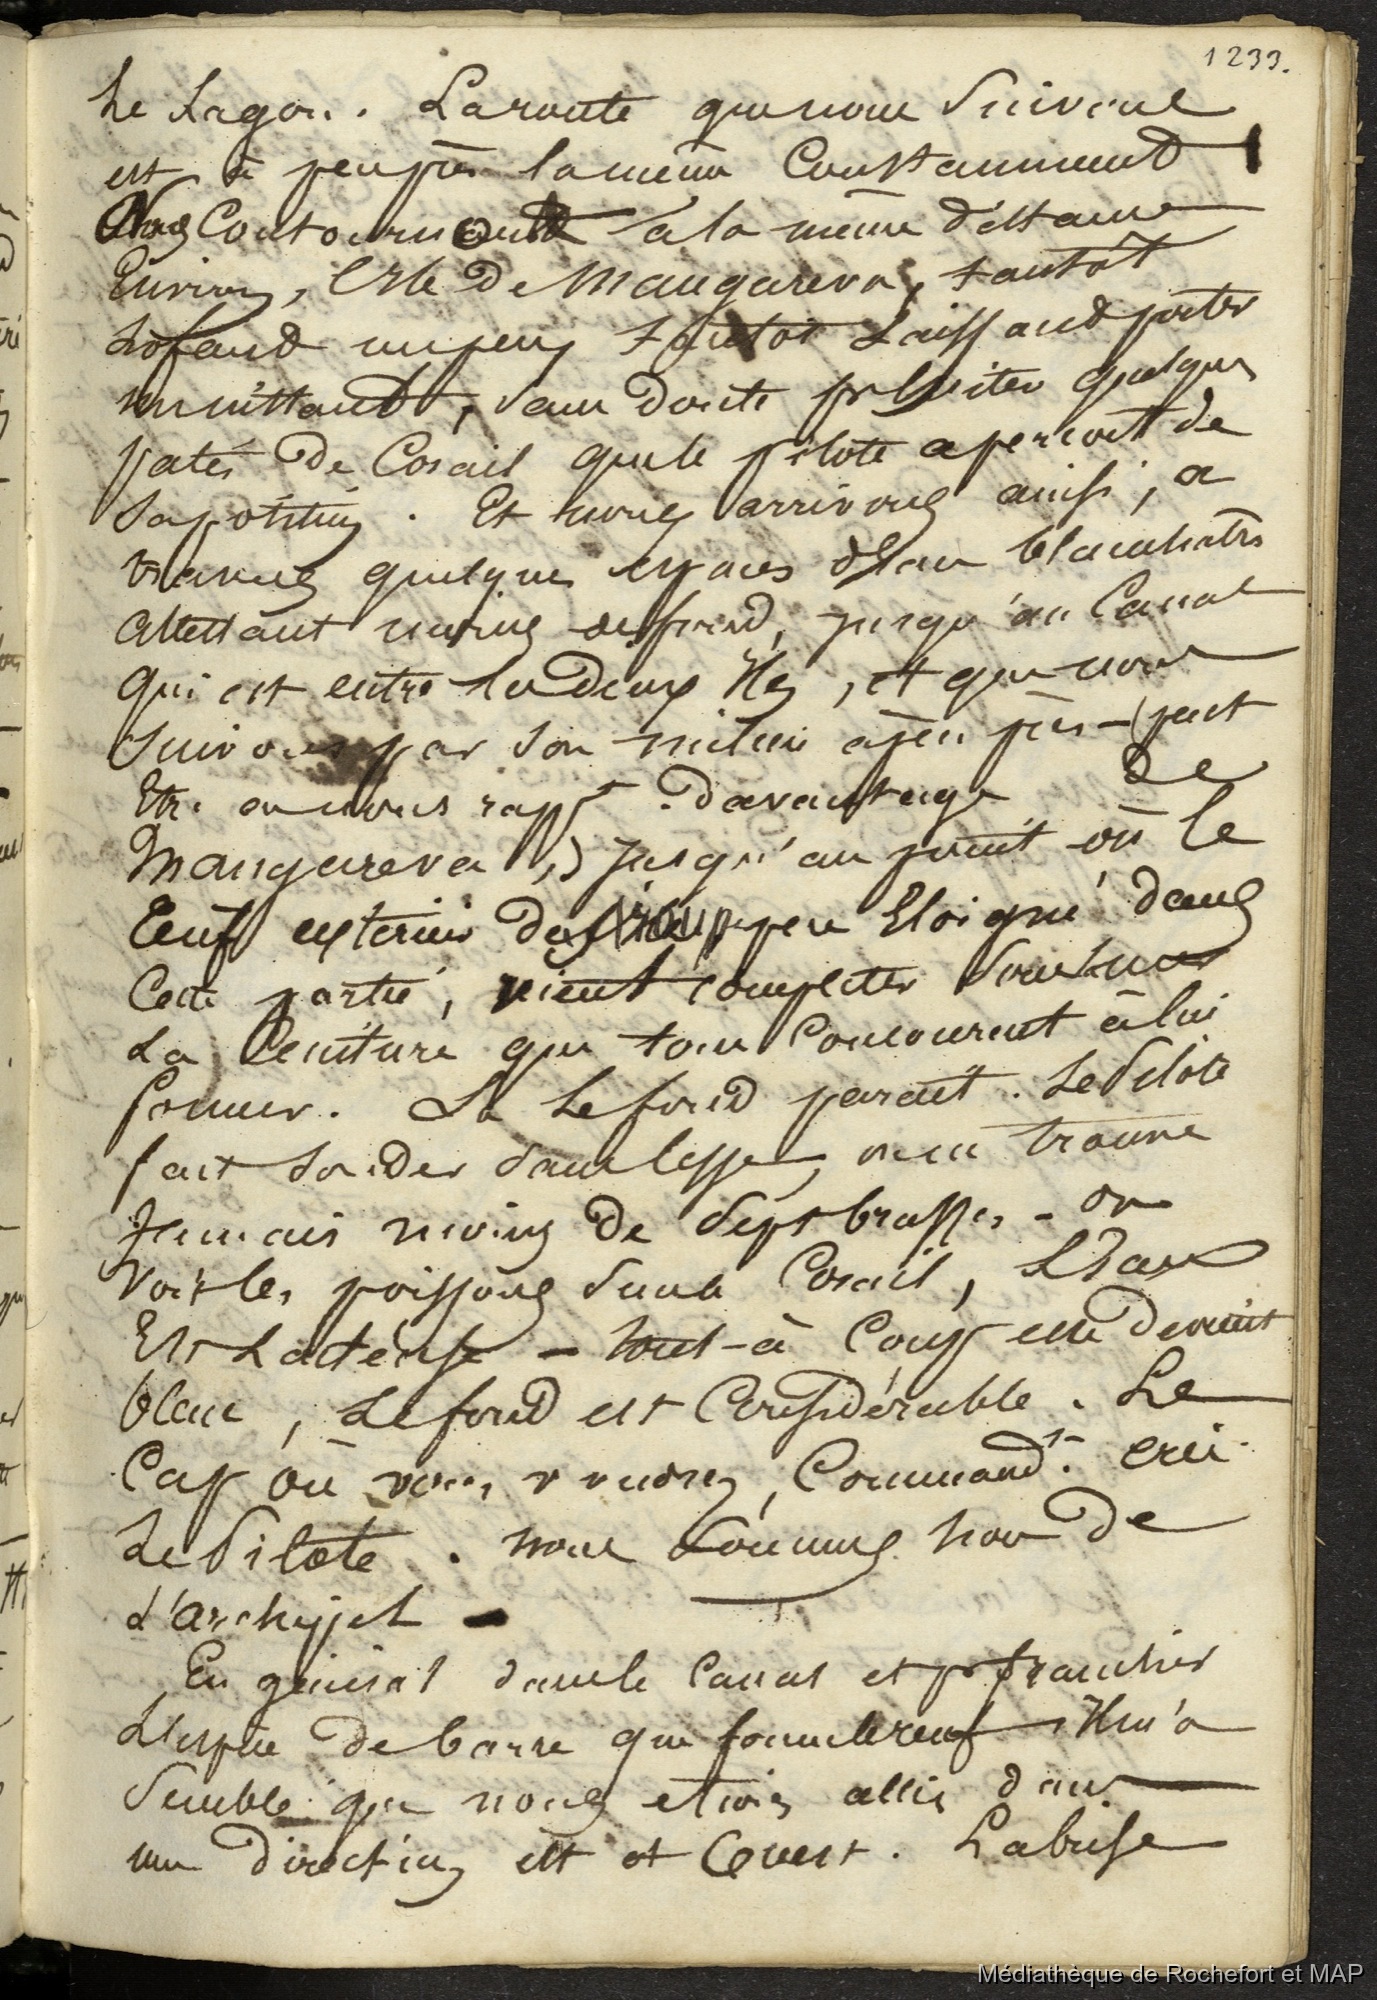 1233.
Le Lagon. La route que nous suivons
est à peu près la même constamment
Nous contournons à la même distance
Environ, l'Ile de Mangareva, tantôt
Lofant un peu tantôt Laissant porter
un instant, sans doute pr Eviter quelques
patés de Corail que le pilote aperçoit de
sa position. Et nous arrivons ainsi, a
travers quelques espaces d'Eau blanchatre
attestant moins de fond, jusqu'au Canal
qui est entre les deux Iles, et que nous
suivons par son milieu à peu près - (peut
Etre en nous rappt. davantage de
Mangareva,) jusqu'au point où le
récif exterieur des peu Eloigné dans
Cette partie, vient completer
La Ceinture que tous concourent à lui
former. Là Le fond parait. Le Pilote
fait sonder sans cesse, on ne trouve
Jamais moins de Sept brasses - on
voit les poissons sur le Corail, L'Eau
Est Laiteuse - tout-à Coup elle devient
bleue, Le fond est Considérable. Le
Cap où vous voudrez, Commandt. crie
Le Pilote. nous sommes hors de
L'archipel -
En général dans le Canal et pr franchir
L'espèce de barre que forme le récif il m'a
Semblé que nous etions allés dans
une direction est et Ouest. La brise
Médiathèque de Rochefort et MAP